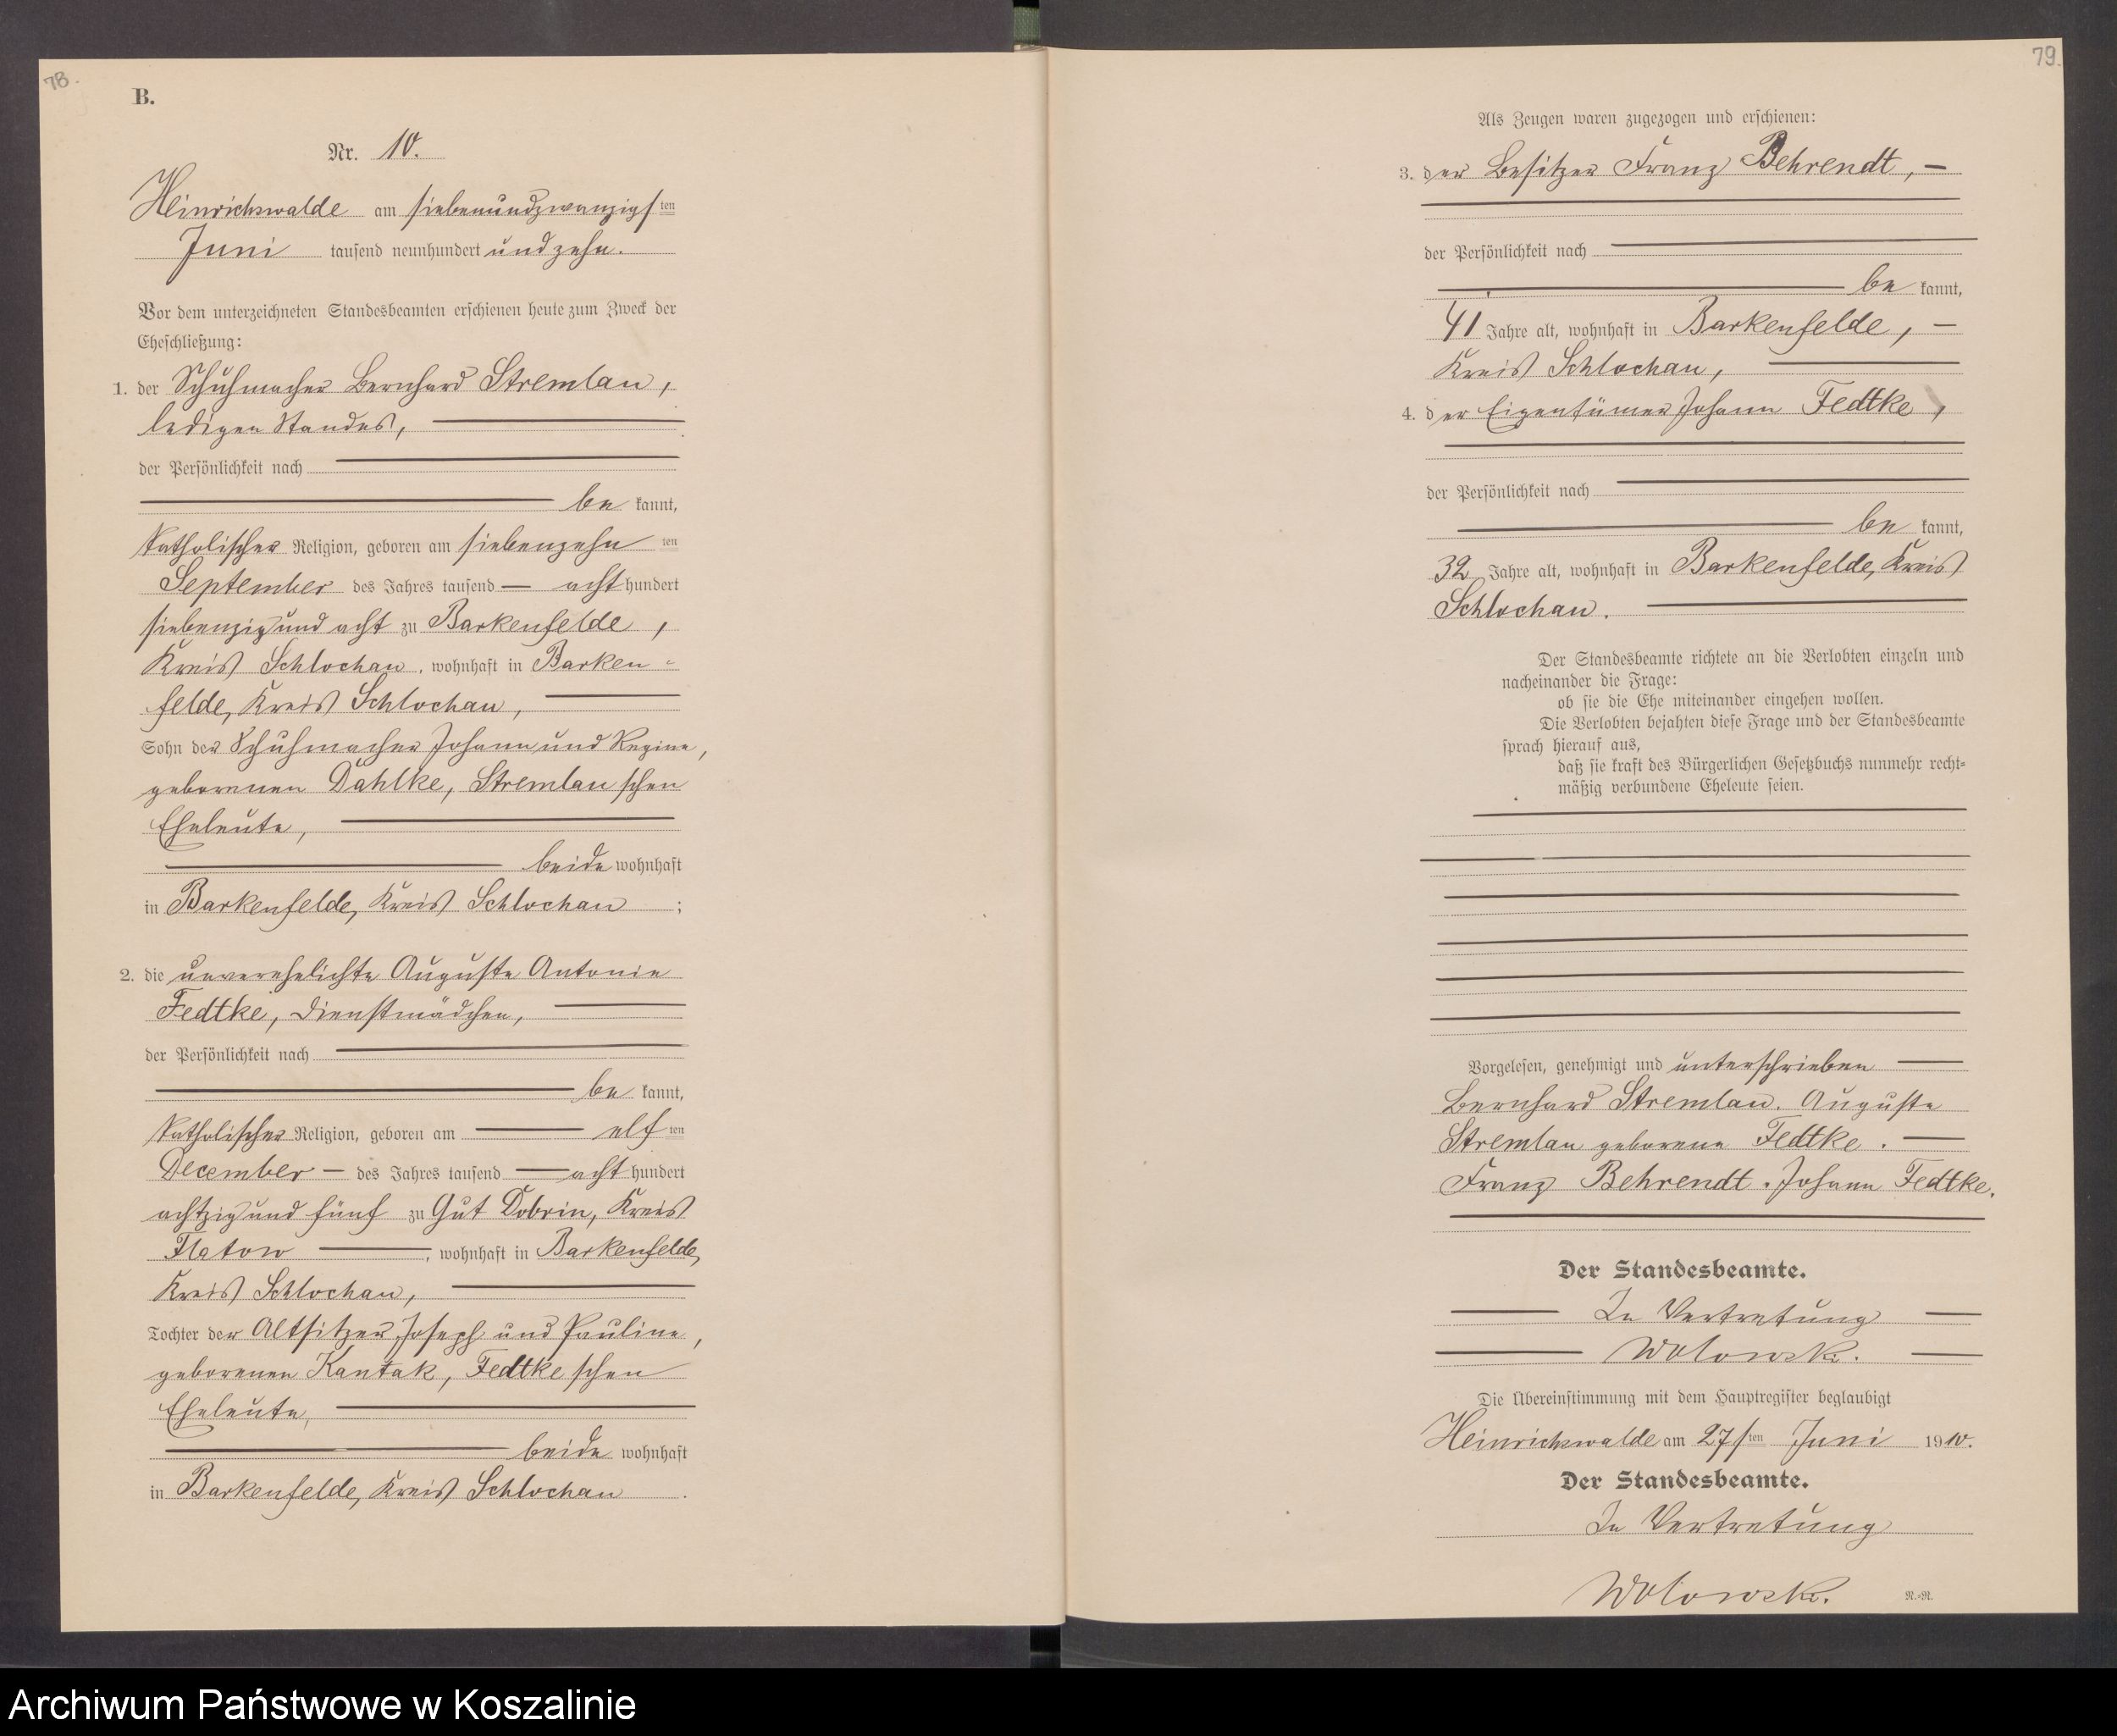 78.
B.
Nr. 10.
Heinrichswalde am siebenundzwanzigsten
Juni tausend neunhundert undzehn.
Vor dem unterzeichneten Standesbeamten erschienen heute zum Zweck der
Eheschließung:
1. der Schuhmacher Bernhard Stremlau,
ledigen Standes,
der Persönlichkeit nach
be kannt,
katholischer Religion, geboren am siebenzehn ten
September des Jahres tausend — acht hundert
siebenzig und acht zu Barkenfelde,
Kreis Schlochau, wohnhaft in Barken-
felde, Kreis Schlochau,
Sohn der Schuhmacher Johann und Regine,
geborenen Dahlke, Stremlau'schen
Eheleute,
beide wohnhaft
in Barkenfelde, Kreis Schlochau ;
2. die unverehelichte Auguste Antonie
Fedtke, Dienstmädchen,
der Persönlichkeit nach
be kannt,
katholischer Religion, geboren am — elf ten
December — des Jahres tausend — acht hundert
achtzig und fünf zu Gut Dobrin, Kreis
Flatow —, wohnhaft in Barkenfelde,
Kreis Schlochau,
Tochter der Altsitzer Joseph und Pauline,
geborenen Kantak, Fedtke'schen
Eheleute,
beide wohnhaft
in Barkenfelde, Kreis Schlochau .
79.
Als Zeugen waren zugezogen und erschienen:
3. der Besitzer Franz Behrendt, —
der Persönlichkeit nach
be kannt,
41 Jahre alt, wohnhaft in Barkenfelde, —
Kreis Schlochau,
4. der Eigentümer Johann Fedtke,
der Persönlichkeit nach
be kannt,
32 Jahre alt, wohnhaft in Barkenfelde, Kreis
Schlochau.
Der Standesbeamte richtete an die Verlobten einzeln und
nacheinander die Frage:
ob sie die Ehe miteinander eingehen wollen.
Die Verlobten bejahten diese Frage und der Standesbeamte
sprach hierauf aus,
daß sie kraft des Bürgerlichen Gesetzbuchs nunmehr recht-
mäßig verbundene Eheleute seien.
Vorgelesen, genehmigt und unterschrieben
Bernhard Stremlau. Auguste
Stremlau geborene Fedtke.
Franz Behrendt. Johann Fedtke.
Der Standesbeamte.
In Vertretung
Wolowski.
Die Übereinstimmung mit dem Hauptregister beglaubigt
Heinrichswalde am 27sten Juni 1910.
Der Standesbeamte.
In Vertretung
Wolowski.
N.-N.
Archiwum Państwowe w Koszalinie